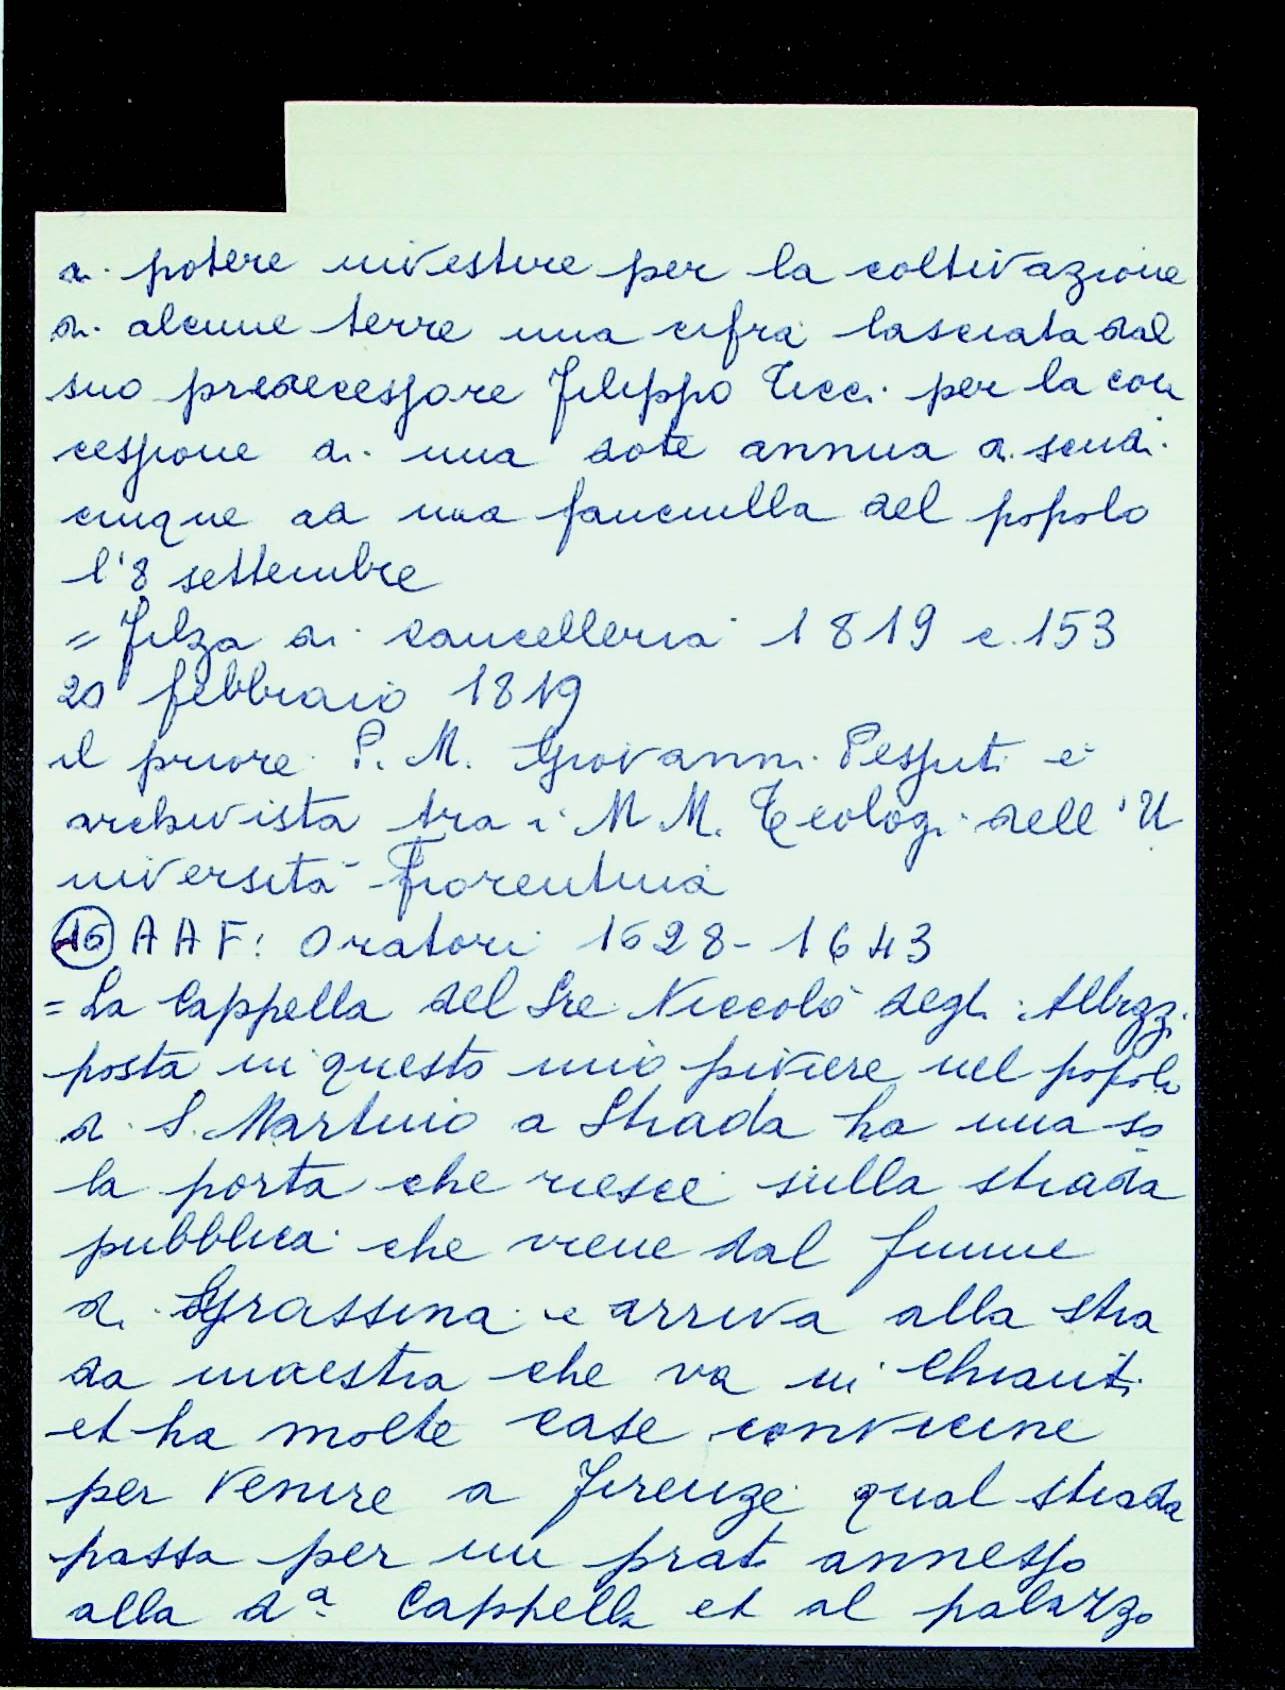 di potere investire per la coltivazione
di alcune terre una cifra lasciata dal
suo predecessore Filippo Ticci per la con
cessione di una dote annua di scudi
cinque ad una fanciulla del popolo
l'8 settembre
= Filza di cancelleria 1819 c. 153
20 febbraio 1819
il priore P. M. Giovanni Pessuti è
archivista tra i M M. Teologi dell'U
niversità Fiorentina
16 A A F: Oratori 1628-1643
= La Cappella del Sre Niccolò degli Albizzi
posta in questo mio piviere nel popolo
di S. Martino a Strada ha una so
la porta che riesce sulla strada
pubblica che viene dal fiume
di Grassina e arriva alla stra
da maestra che va in Chianti
et ha molte case convicine
per venire a Firenze qual strada
passa per un prato annesso
alla dª Cappella et al palazzo